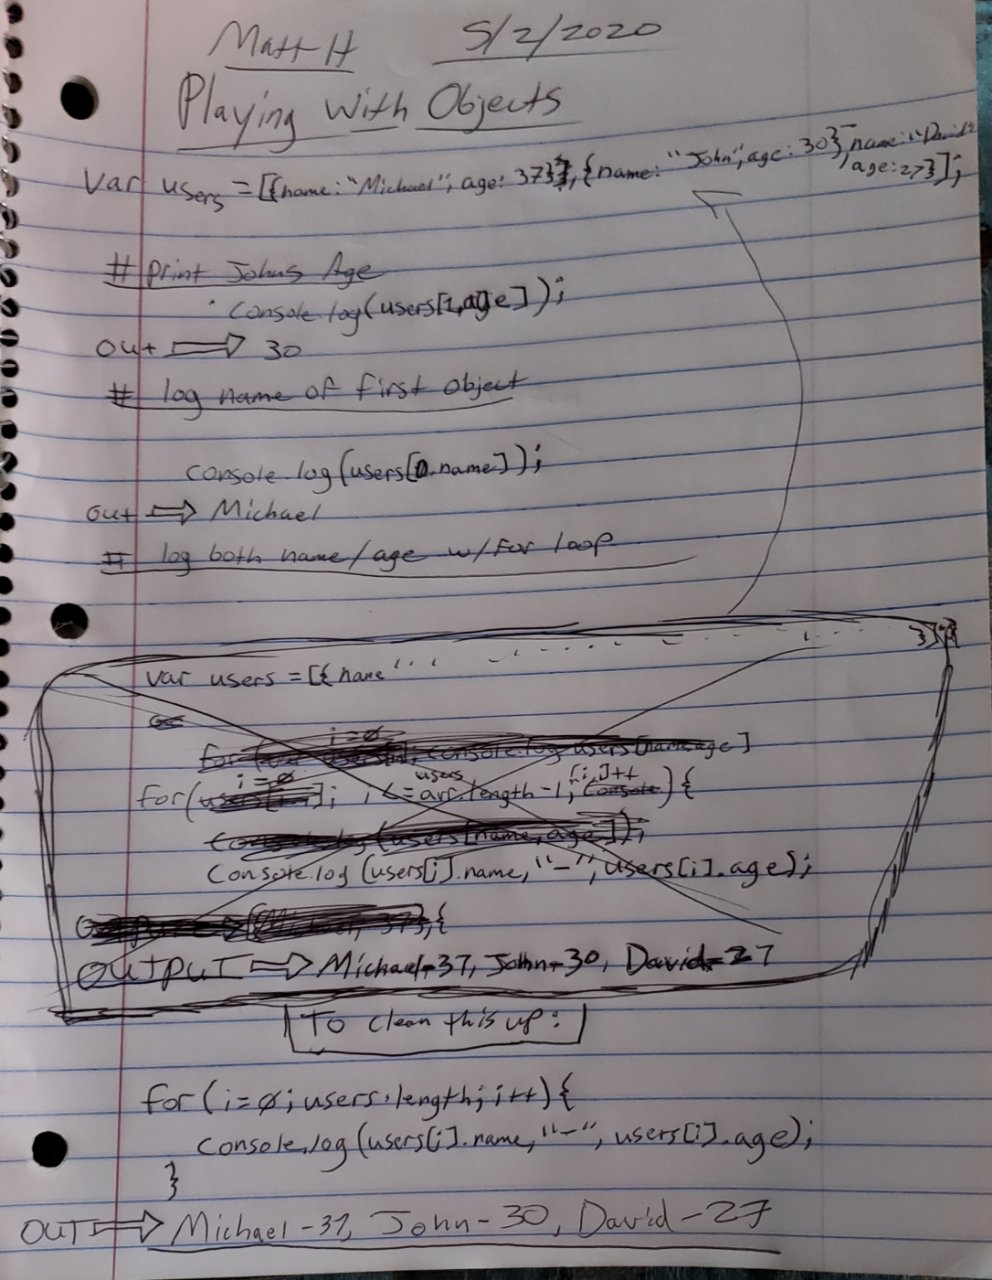 Matt H 5/2/2020
Playing with Objects
Var users = [{name: "Michael", age: 37}, {name: "John", age: 30}, name: "David"
age: 27}];
# print Johns Age
console.log(users[1,age]);
out ⇒ 30
# log name of first object
console.log(users[0.name]);
out ⇒ Michael
# log both name/age w/for loop
var users = [{name"
i=0
console.log users[name,age]
i=0 users [i]++
for( ; , <= arr.length-1; console){
console.log(users[name, age]);
Console.log (users[i].name, "-", users[i].age);
37},{
OUTPUT ⇒ Michael-37, John-30, David-27
To clean this up:
for (i=0; users.length; i++){
console.log (users[i].name, "-", users[i].age);
}
OUT ⇒ Michael-37, John-30, David-27